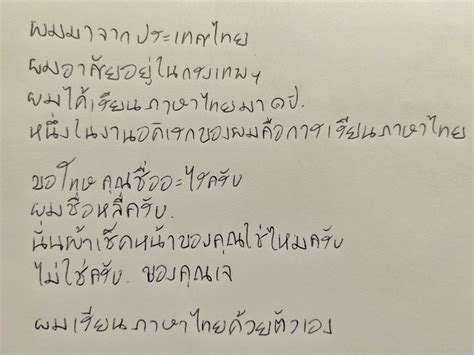 ผมมาจากประเทศไทย
ผมอาศัยอยู่ในกรุงเทพฯ
ผมได้เรียนภาษาไทยมา ๑ ปี.
หนึ่งในงานอดิเรกของผมคือการเรียนภาษาไทย
ขอโทษ คุณชื่ออะไรครับ
ผมชื่อหลี่ครับ.
นั่นผ้าเช็ดหน้าของคุณใช่ไหมครับ
ไม่ใช่ครับ. ของคุณเจ
ผมเรียนภาษาไทยด้วยตัวเอง